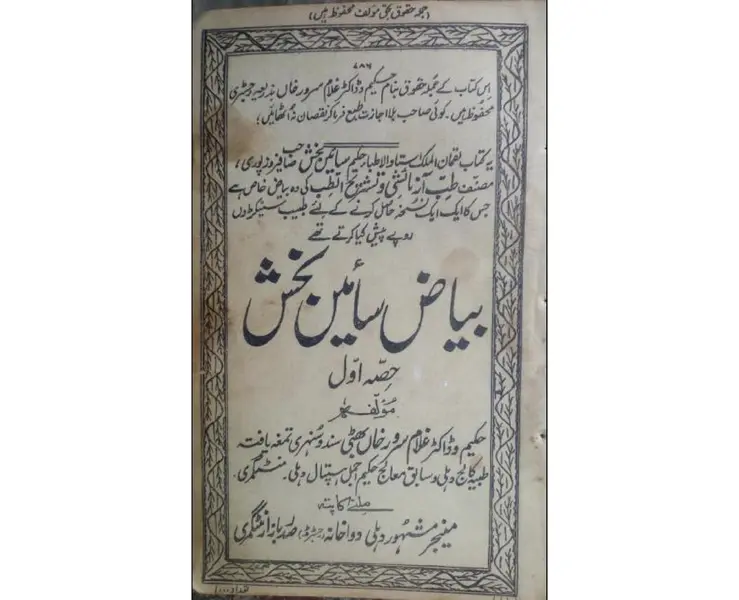 (جملہ حقوق بحق مؤلف محفوظ ہیں)
۷۸۶
اس کتاب کے جملہ حقوق بنام حکیم و ڈاکٹر غلام سرور خاں بذریعہ رجسٹری
محفوظ ہیں۔ کوئی صاحب بلا اجازت طبع فرما کر نقصان نہ اٹھائیں؛
یہ کتاب لقمان الملک استاد الاطباء حکیم سائیں بخش صاحب فیروزپوری،
مصنف طب آزمائشی و نشتر تشریح الطب کی وہ بیاض خاص ہے
جس کا ایک ایک نسخہ حاصل کرنے کے لئے طبیب سینکڑوں
روپے پیش کیا کرتے تھے
بیاض سائیں بخش
حصہ اول
مؤلفہ
حکیم و ڈاکٹر غلام سرور خاں بھٹی سند و سنہری تمغہ یافتہ
طبیہ کالج دہلی و سابق معالج حکیم اجمل ہسپتال دہلی۔ منٹگمری۔
ملنے کا پتہ
مینجر مشہور دہلی دواخانہ (رجسٹرڈ) صدر بازار منٹگمری
تعداد ۱۰۰۰